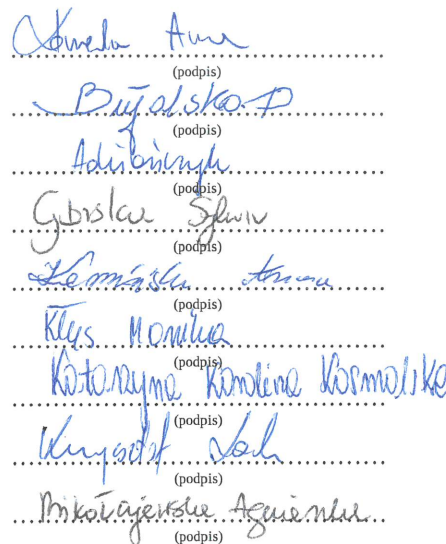 Anna
(podpis)
(podpis)
(podpis)
Górska Sylwia
(podpis)
Kamińska Anna
(podpis)
Kłys Monika
(podpis)
Katarzyna Karolina Kosmalska
(podpis)
Krzysztof
(podpis)
Mikołajewska Agnieszka
(podpis)